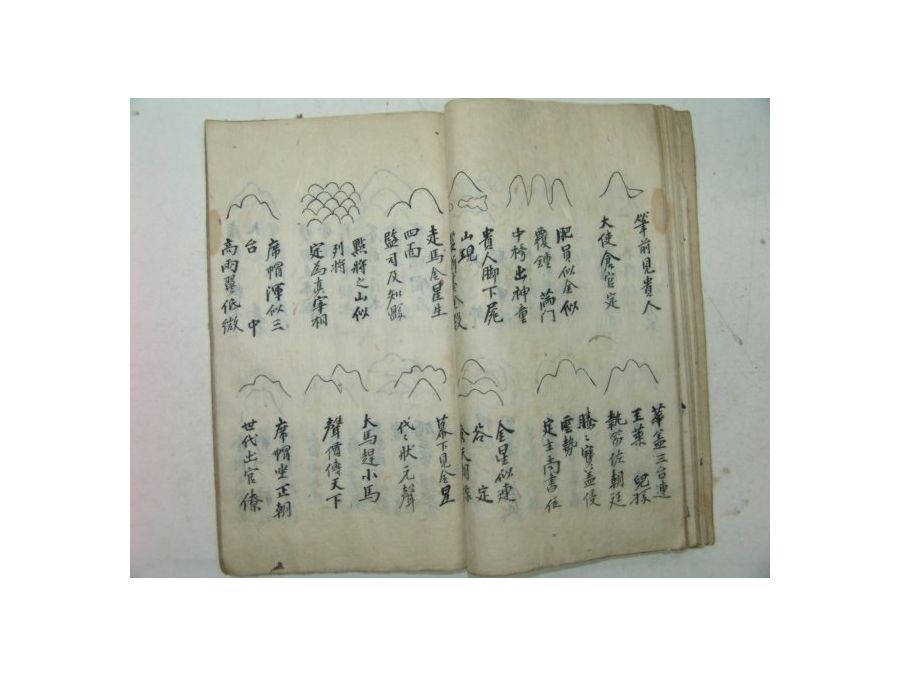 筆前見貴人
大使倉官定
肥員似金似
覆鍾 滿门
中𢳂出神童
貴人脚下尾
山現
走馬金星生
四面
監司及知縣
點將之山似
列將
定為真宰相
席帽渾似三
台 中
高兩翼低微
華盖三台連
玉葉 兒孫
執笏佐朝廷
騰〻寶盖侵
雲勢
定主尚書位
金星似連
谷 定
幕下見金星
代〻狀元聲
大馬趕小馬
聲價傳天下
席帽坐正朝
世代出官僚